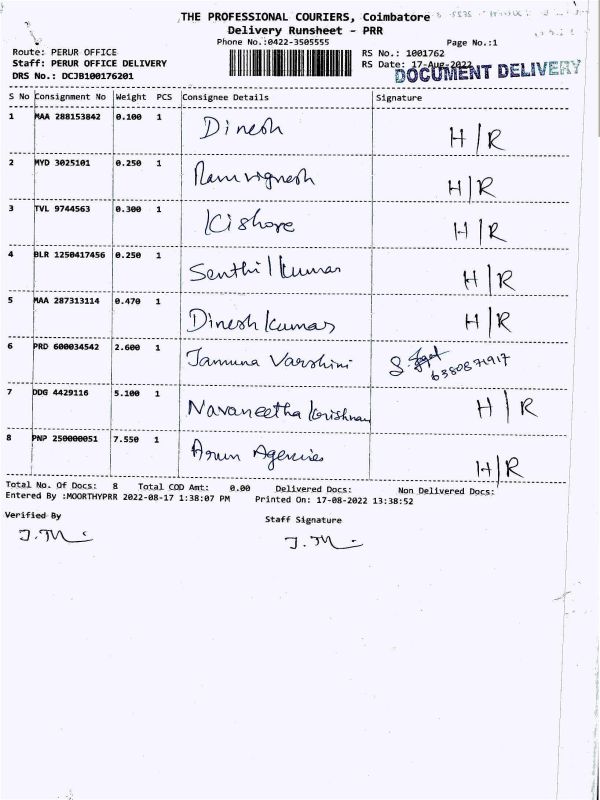 THE PROFESSIONAL COURIERS, Coimbatore
Delivery Runsheet - PRR
Phone No.:0422-3505555
Page No.:1
Route: PERUR OFFICE
RS No.: 1001762
Staff: PERUR OFFICE DELIVERY
RS Date: 17-Aug-2022
DRS No.: DCJB100176201
DOCUMENT DELIVERY
S No Consignment No Weight PCS Consignee Details Signature
1 MAA 288153842 0.100 1 Dinesh H/R
2 MYD 3025101 0.250 1 Ramvignesh H/R
3 TVL 9744563 0.300 1 Kishore H/R
4 BLR 1250417456 0.250 1 Senthil kumar H/R
5 MAA 287313114 0.470 1 Dinesh kumar H/R
6 PRD 600034542 2.600 1 Jamuna Varshini S.
6380871917
7 DDG 4429116 5.100 1 Navaneetha krishnan H/R
8 PNP 250000051 7.550 1 Arun Agencies H/R
Total No. Of Docs: 8 Total COD Amt: 0.00 Delivered Docs: Non Delivered Docs:
Entered By :MOORTHYPRR 2022-08-17 1:38:07 PM Printed On: 17-08-2022 13:38:52
Verified By
Staff Signature